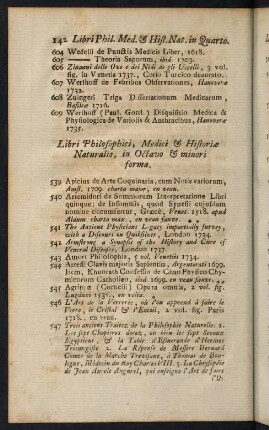 242 Libri Phil. Med. & Hist. Nat. in Quarto.
604 Wefelii de Punctis Medicis Liber, 1618.
605 ——— Theoria Saporum, ibid. 1703.
606 Zinanni delle Ova e dei Nidi de gli Uccelli, 3 vol. fig. in Venetia 1737. Corio Turcico deaurato.
607 Werlhoff de Febribus Observationes, Hanoveræ 1732.
608 Zuingeri Triga Dissertationum Medicarum, Basileæ 1716.
609 Werlhoff (Paul. Gottl.) Disquisitio Medica & Physiologica de Variolis & Anthracibus, Hanoveræ 1735.
Libri Philosophici, Medici & Historiæ
Naturalis, in Octavo & minori
forma.
539 Apicius de Arte Coquinaria, cum Notis variorum, Amst. 1709. charta major, en veau.
540 Artemidori de Somniorum Interpretatione Libri quinque: de Insomniis, quod Synesii cujusdam nomine circumfertur, Græcè, Venet. 1518. apud Aldum charta max. en veau fauve.
541 The Antient Physicians Legacy impartially survey, with a Discours on Quicksilver, London 1734.
542 Armstrong a Synopsis of the History and Cure of Veneral Diseases, London 1737.
543 Amort Philosophia, 5 vol. Venetiis 1734.
544 Clavis majoris Sapientiæ, Argentorati 1699. Item, Khunrath Confessio de Chao Physico-Chymicorum Catholico, ibid. 1699. en veau fauve.
545 Agrippæ (Cornelii) Opera omnia, 2 vol. fig. Lugduni 1531. en velin.
546 L'Art de la Verrerie, où l'on apprend à faire le Verre, le Cristal & l'Email, 2 vol. fig. Paris 1718. en veau.
547 Trois anciens Traitez de la Philosophie Naturelle. 1. Les sept Chapitres dorez, ou bien les sept Sceaux Egyptiens, & la Table d'Esmeraude d'Hermes Trismegiste 2. La Réponse de Messire Bernard Comte de la Marche Trevisane, à Thomas de Boulogne, Médecin du Roy Charles VIII. 3 La Chrysopée de Jean Aurele Augurel, qui enseigne l'Art de faire
l'Or.